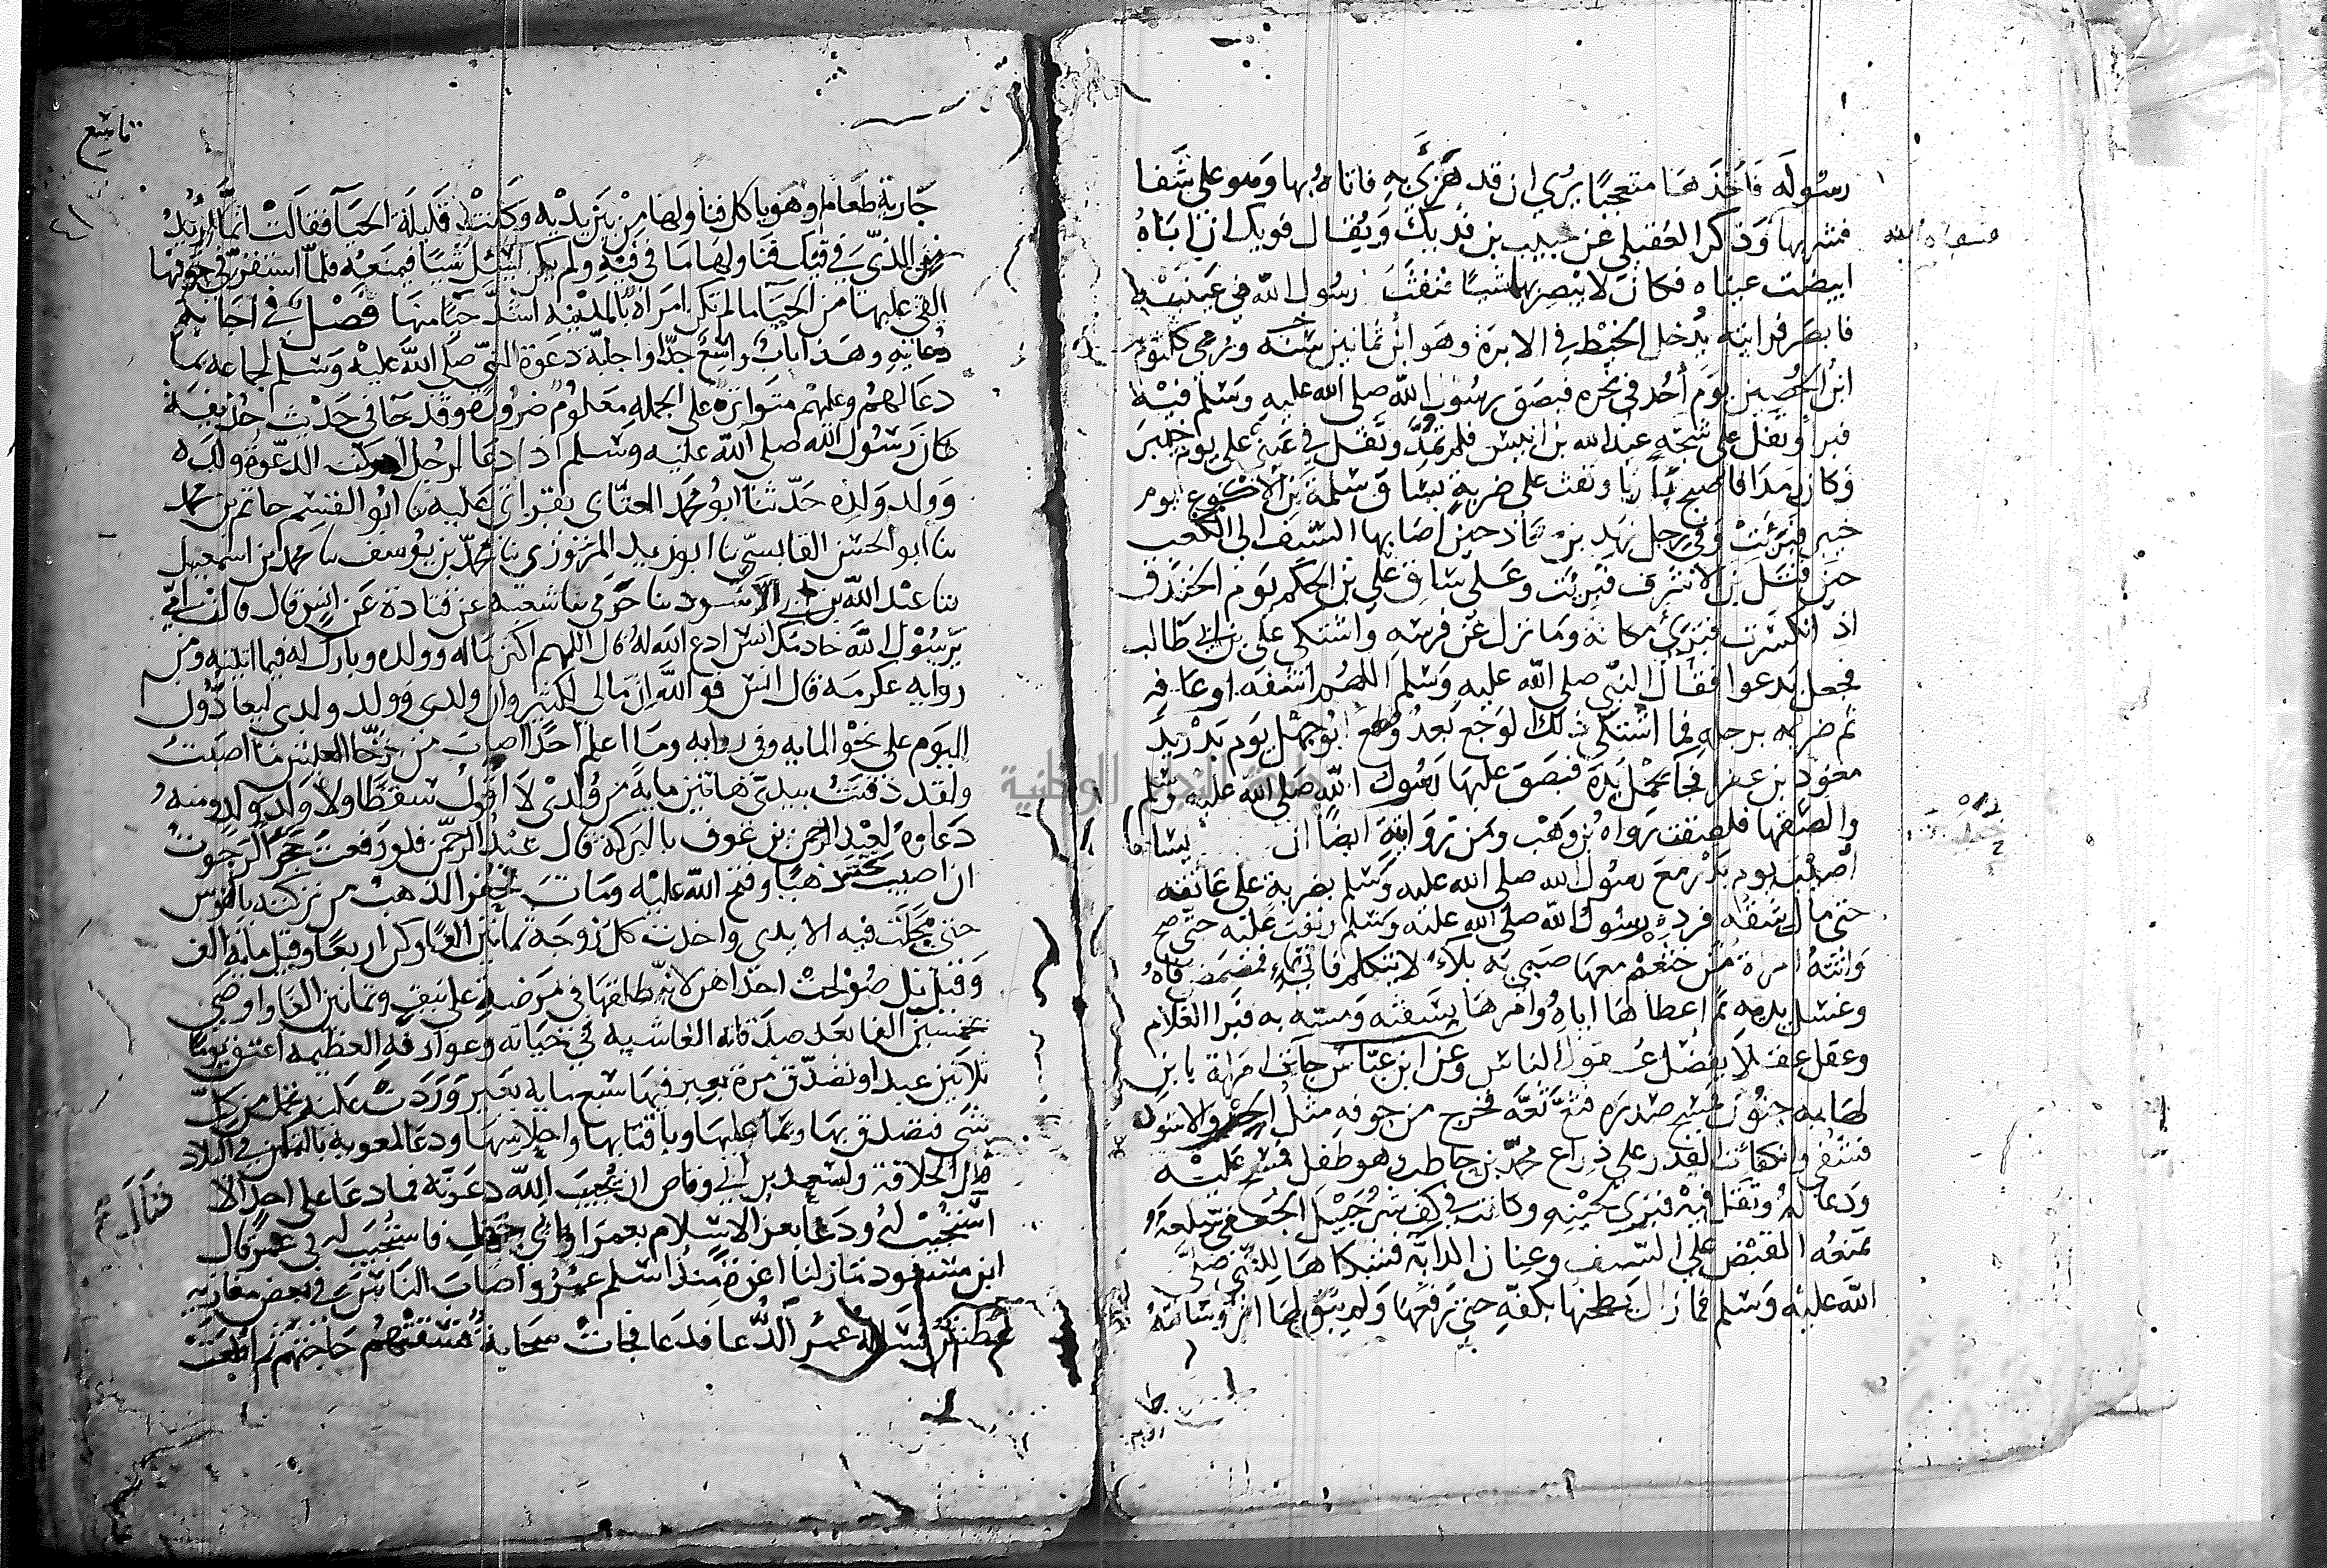 رسوله فاخذها متعجبا يرى ان قد هزئ به فاتاه بها وهو على شفا
فشربها وذكر العقيلى عن حبيب بن فديك ويقال فويك ان اباه
ابيضت عيناه فكان لا يبصر بهما شيا فنفث رسول الله في عينيه
فابصر فرايته يدخل الخيط في الابرة وهو ابن ثمانين سنه ورمى كلثوم
ابن الحصين يوم أحد في نحره فبصق رسول الله صلى الله عليه وسلم فيه
فبرأ وتفل على شجة عبد الله بن انيس فلم تمد وتفل في عينى على يوم خيبر
وكان رمدا فاصبح باريا ونفث على ضربة بساق سلمة بن الاكوع يوم
خيبر فبرئت وفي رجل زيد بن معاذ حين اصابها السيف الى الكعب
حين قتل بن الاشرف فبرئت وعلى ساق على بن الحكم يوم الخندق
اذ انكسرت فبرئ مكانه وما نزل عن فرسه واشتكى على بن ابي طالب
فجعل يدعوا فقال النبي صلى الله عليه وسلم اللهم اشفه او عافه
ثم ضربه برجله فما اشتكى ذلك الوجع بعد وقطع ابو جهل يوم بدر يد
معوذ بن عفرا فجا يحمل يده فبصق عليها رسول الله صلى الله عليه وسلم
والصقها فلصقت رواه بن وهب ومن روايته ايضا ان يسافا
اصيب يوم بدر مع رسول الله صلى الله عليه وسلم بضربة على عاتقه
حتى مال شقه فرده رسول الله صلى الله عليه وسلم ونفث عليه حتى صح
واتته امراة من خثعم معها صبي به بلاء لا يتكلم فاتي بماء فمضمض فاه
وغسل يديه ثم اعطاها اياه وامرها بسقيه ومسه به فبرا الغلام
وعقل عقلا يفضل عقول الناس وعن ابن عباس جات امراة بابن
لها به جنون فمسح صدره فثع ثعه فخرج من جوفه مثل الجرو الاسود
فشفى وانكفات القدر على ذراع محمد بن حاطب وهو طفل فمسح عليه
ودعا له وتفل فيه فبرئ لحينه وكانت في كف شرحبيل الجعفى سلعه
تمنعه القبض على السيف وعنان الدابه فشكاها للنبي صلى
الله عليه وسلم فما زال يطحنها بكفه حتى رفعها ولم يبق لها اثر وسالته
تاسع
جارية طعاما وهو ياكل فناولها من بين يديه وكانت قليلة الحيا فقالت انما اريد
من الذي في فيك فناولها ما في فيه ولم يكن يسئل شيا فيمنعه فلما استقر في جوفها
القى عليها من الحيا ما لم تكن امراة بالمدينه اشد حيا منها فصل في اجابة
دعايه وهذا باب واسع جدا واجابة دعوة النبي صلى الله عليه وسلم لجماعه بما
دعا لهم وعليهم متواتره على الجمله معلوم ضرورة وقد جا في حديث حذيفة
كان رسول الله صلى الله عليه وسلم اذا دعا لرجل ادركت الدعوة ولده
وولد ولده حدثنا ابو محمد العتابى بقراتى عليه نا ابو القسم حاتم بن محمد
نا ابو الحسن القابسي نا ابو زيد المروزي نا محمد بن يوسف نا محمد بن اسمعيل
نا عبد الله بن ابي الاسود نا حرمى نا شعبة عن قتادة عن انس قال قالت امى
يرسول الله خادمك انس ادع الله له قال اللهم اكثر ماله وولده وبارك له فيما اتيته ومن
روايه عكرمه قال انس فو الله ان مالى لكثير وان ولدى وولد ولدى ليعادون
اليوم على نحو المايه وفى روايه وما اعلم احدا اصاب من رخا العيش ما اصبت
ولقد دفنت بيدي هاتين مايه من ولدى لا اقول سقطا ولا ولد ولد ومنه
دعاوه لعبد الرحمن بن عوف بالبركة قال عبد الرحمن فلو رفعت حجرا لرجوت
ان اصيب تحته ذهبا وفتح الله عليه ومات فحفر الذهب من تركته بالفوس
حتى مجلت فيه الايدى واخذت كل زوجه ثمانين الفا وكن اربعا وقيل مائة الف
وقيل بل صولحت احداهن لانه طلقها فى مرضه على نيف وثمانين الفا واوصى
بخمسين الفا بعد صدقاته الفاشيه في حياته وعوارفه العظيمه اعتق يوما
ثلاثين عبدا وتصدق مرة بعير فيها سبع مايه بعير وردت عليه تحمل من كل
شي فتصدق بها وبما عليها وباقتابها واحلاسها ودعا لمعويه بالتمكين في البلاد
فنال الخلافة ولسعد بن ابي وقاص ان يجيب الله دعوته فما دعا على احد الا
استجيب له ودعا بعز الاسلام بعمر او بابي جهل فاستجيب له في عمر قال
ابن مسعود ما زلنا اعزة منذ اسلم عمر واصاب الناس في بعض مغازيه
عطش فساله عمر الدعا فدعا فجات سحابة فسقتهم حاجتهم ثم اقلعت